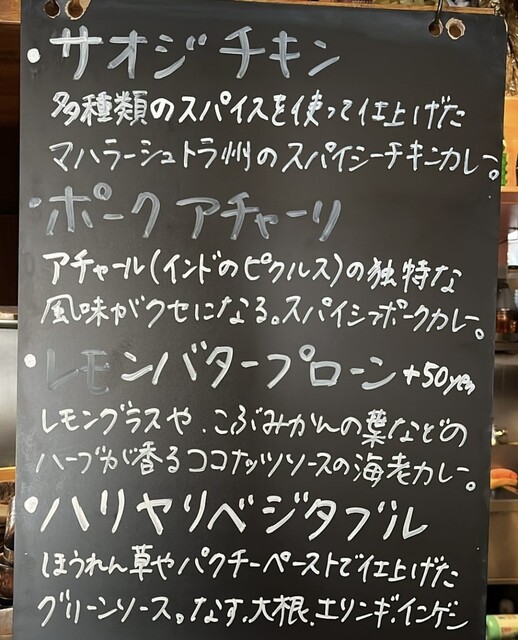 ・サオジチキン
多種類のスパイスを使って仕上げた
マハラーシュトラ州のスパイシーチキンカレー。
・ポークアチャーリ
アチャール(インドのピクルス)の独特な
風味がクセになる。スパイシーポークカレー。
・レモンバタープローン+50yen
レモングラスや、こぶみかんの葉などの
ハーブが香るココナッツソースの海老カレー。
・ハリヤリベジタブル
ほうれん草やパクチーペーストで仕上げた
グリーンソース。なす、大根、エリンギ、インゲン